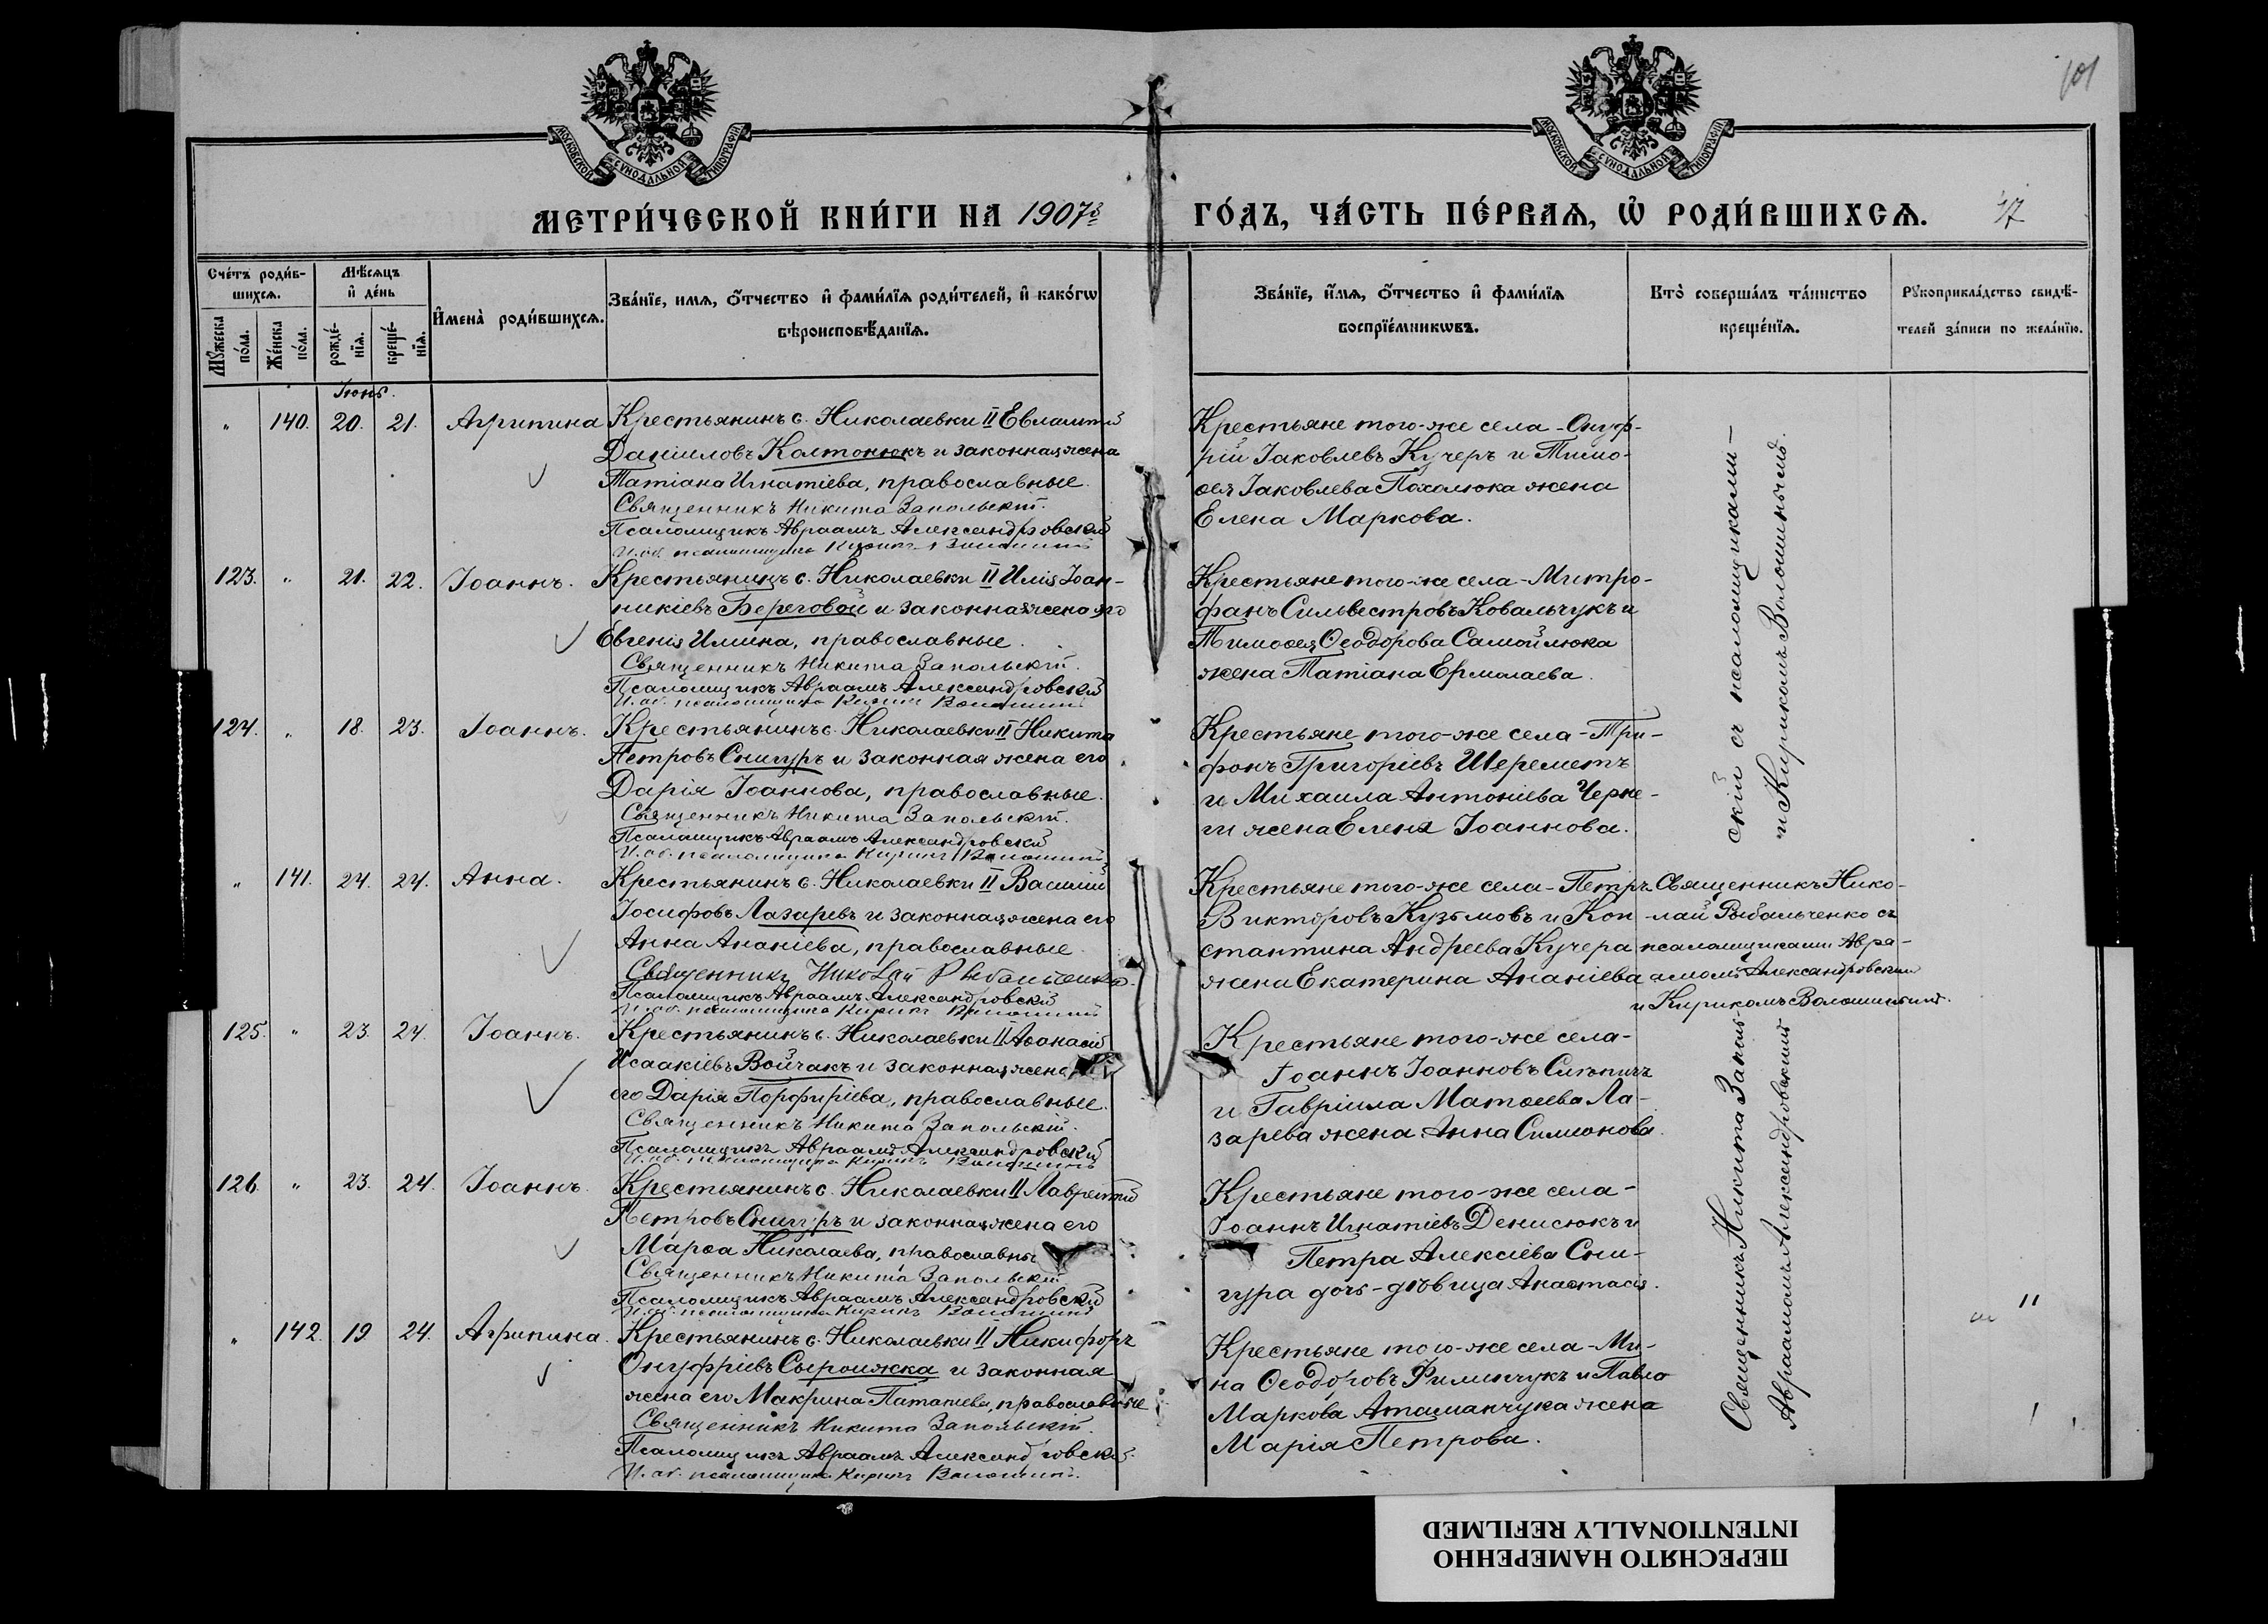 101
МОСКОВСКОЙ СѴНОДАЛЬНОЙ ТИПОГРАФІИ
МОСКОВСКОЙ СѴНОДАЛЬНОЙ ТИПОГРАФІИ
МЕТРИ́ЧЕСКОЙ КНИ́ГИ НА 1907й
ГО́ДЪ, ЧА́СТЬ ПЕ́РВАѦ, Ѽ РОДИ́ВШИХСѦ.
Сче́тъ роди́в-
шихсѧ.
Мꙋ́жеска
по́ла.
Же́нска
по́ла.
Мѣ́сѧцъ
и҆ де́нь
рожде́-
нїѧ.
креще́-
нїѧ.
И҆мена̀ роди́вшихсѧ.
Зва́нїе, имѧ, ѻ҆́тчество и҆ фами́лїѧ роди́телей, и҆ како́гѡ
вѣроисповѣ́данїѧ.
Зва́нїе, и҆́мѧ, ѻ҆́тчество и҆ фами́лїѧ
воспрїе́мникѡвъ.
Кто̀ соверша́лъ та́инство
креще́нїѧ.
Рꙋкоприкла́дство свидѣ́-
телей за́писи по жела́нїю.
Іюнь.
" 140. 20. 21. Агрипина
Крестьянинъ с. Николаевки II Евлампій
Даніиловъ Колтонюкъ и законная жена
Татіана Игнатіева, православные.
Священникъ Никита Запольскій.
Псаломщикъ Авраамъ Александровскій
И. об. псаломщика Кирикъ Волошинъ
Крестьяне того-же села - Онуф-
рій Іаковлевъ Кучеръ и Тимо-
ѳея Іаковлева Похолюка жена
Елена Маркова.
123. " 21. 22. Іоаннъ.
Крестьянинъ с. Николаевки II Илія Іоан-
никіевъ Береговой и законная жена его
Евгенія Илиина, православные.
Священникъ Никита Запольскій.
Псаломщикъ Авраамъ Александровскій
И. об. псаломщика Кирикъ Волошинъ
Крестьяне того-же села - Митро-
фанъ Сильвестровъ Ковальчукъ и
Тимоѳея Ѳеодорова Самойлюка
жена Татіана Ермолаева.
124. " 18. 23. Іоаннъ.
Крестьянинъ с. Николаевки II Никита
Петровъ Снигуръ и законная жена его
Дарія Іоаннова, православные.
Священникъ Никита Запольскій.
Псаломщикъ Авраамъ Александровскій
И. об. псаломщика Кирикъ Волошинъ
Крестьяне того-же села - Три-
фонъ Григоріевъ Шереметъ
и Михаила Антоніева Черне-
ги жена Елена Іоаннова.
" 141. 24. 24. Анна.
Крестьянинъ с. Николаевки II Василій
Іосифовъ Лазаревъ и законная жена его
Анна Ананіева, православные
Священникъ Николай Рыбальченко.
Псаломщикъ Авраамъ Александровскій
И. об. псаломщика Кирикъ Волошинъ
Крестьяне того-же села - Петръ
Викторовъ Кузьмовъ и Кон-
стантина Андреева Кучера
жена Екатерина Ананіева
Священникъ Нико-
лай Рыбальченко съ
псаломщиками Авра-
амомъ Александровскимъ
и Кирикомъ Волошинымъ.
125. " 23. 24. Іоаннъ.
Крестьянинъ с. Николаевки II Аѳанасій
Исаакіевъ Войчакъ и законная жена
его Дарія Порфиріева, православные.
Священникъ Никита Запольскій.
Псаломщикъ Авраамъ Александровскій
И. об. псаломщика Кирикъ Волошинъ
Крестьяне того-же села -
Іоаннъ Іоанновъ
и Гавріила Матѳеева Ла-
зарева жена Анна Симонова.
126. " 23. 24. Іоаннъ.
Крестьянинъ с. Николаевки II Лаврентій
Петровъ Снигуръ и законная жена его
Марѳа Николаева, православны
Священникъ Никита Запольскій
Псаломщикъ Авраамъ Александровскій
И. об. псаломщика Кирикъ Волошинъ
Крестьяне того-же села -
Іоаннъ Игнатіевъ Денисюкъ и
Петра Алексіева Сни-
гура дочь-дѣвица Анастасія.
" 142. 19. 24. Агрипина.
Крестьянинъ с. Николаевки II Никифоръ
Онуфріевъ Сыроижка и законная
жена его Макрина, православные
Священникъ Никита Запольскій.
Псаломщикъ Авраамъ Александровскій.
И. об. псаломщика Кирикъ Волошинъ.
Крестьяне того-же села - Ми-
на Ѳеодоровъ Филипчукъ и Павла
Маркова Атаманчука жена
Марія Петрова.
Священникъ Никита Заполь-
скій съ псаломщиками -
Авраамомъ Александровскимъ
и Кирикомъ Волошинымъ.
ПЕРЕСНЯТО НАМЕРЕННО
INTENTIONALLY REFILMED